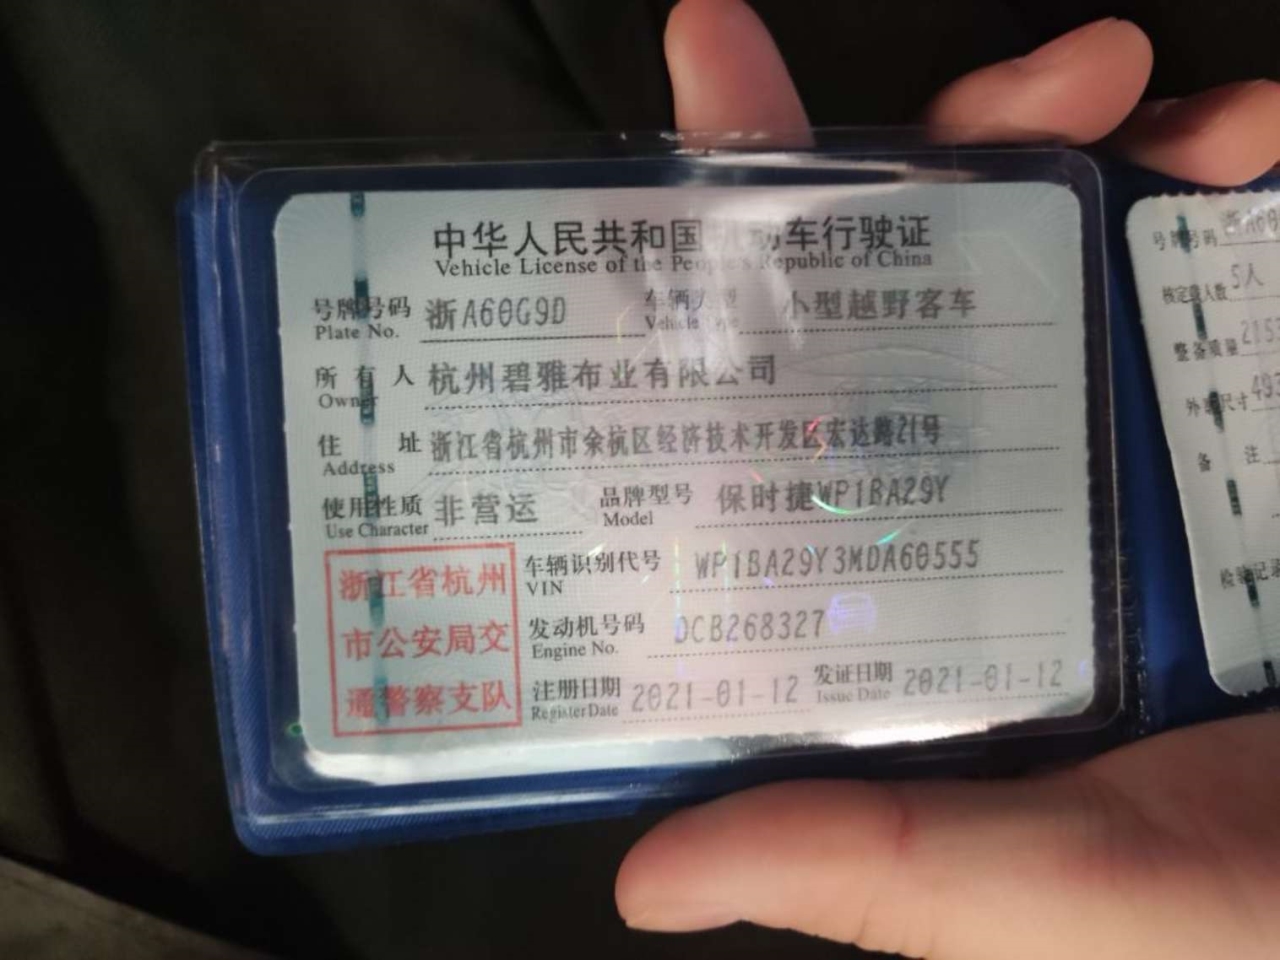 中华人民共和国机动车行驶证
Vehicle License of the People's Republic of China
号牌号码 浙A60G9D 车辆类型 小型越野客车
Plate No. Vehicle Type
所有人 杭州碧雅布业有限公司
Owner
住址 浙江省杭州市余杭区经济技术开发区宏达路21号
Address
使用性质 非营运 品牌型号 保时捷WP1BA29Y
Use Character Model
浙江省杭州
市公安局交
通警察支队
车辆识别代号 WP1BA29Y3MDA60555
VIN
发动机号码 DCB268327
Engine No.
注册日期 2021-01-12 发证日期 2021-01-12
Register Date Issue Date
号牌号码 浙A60
核定载人数 5人
整备质量 215
外廓尺寸 493
备注
检验记录